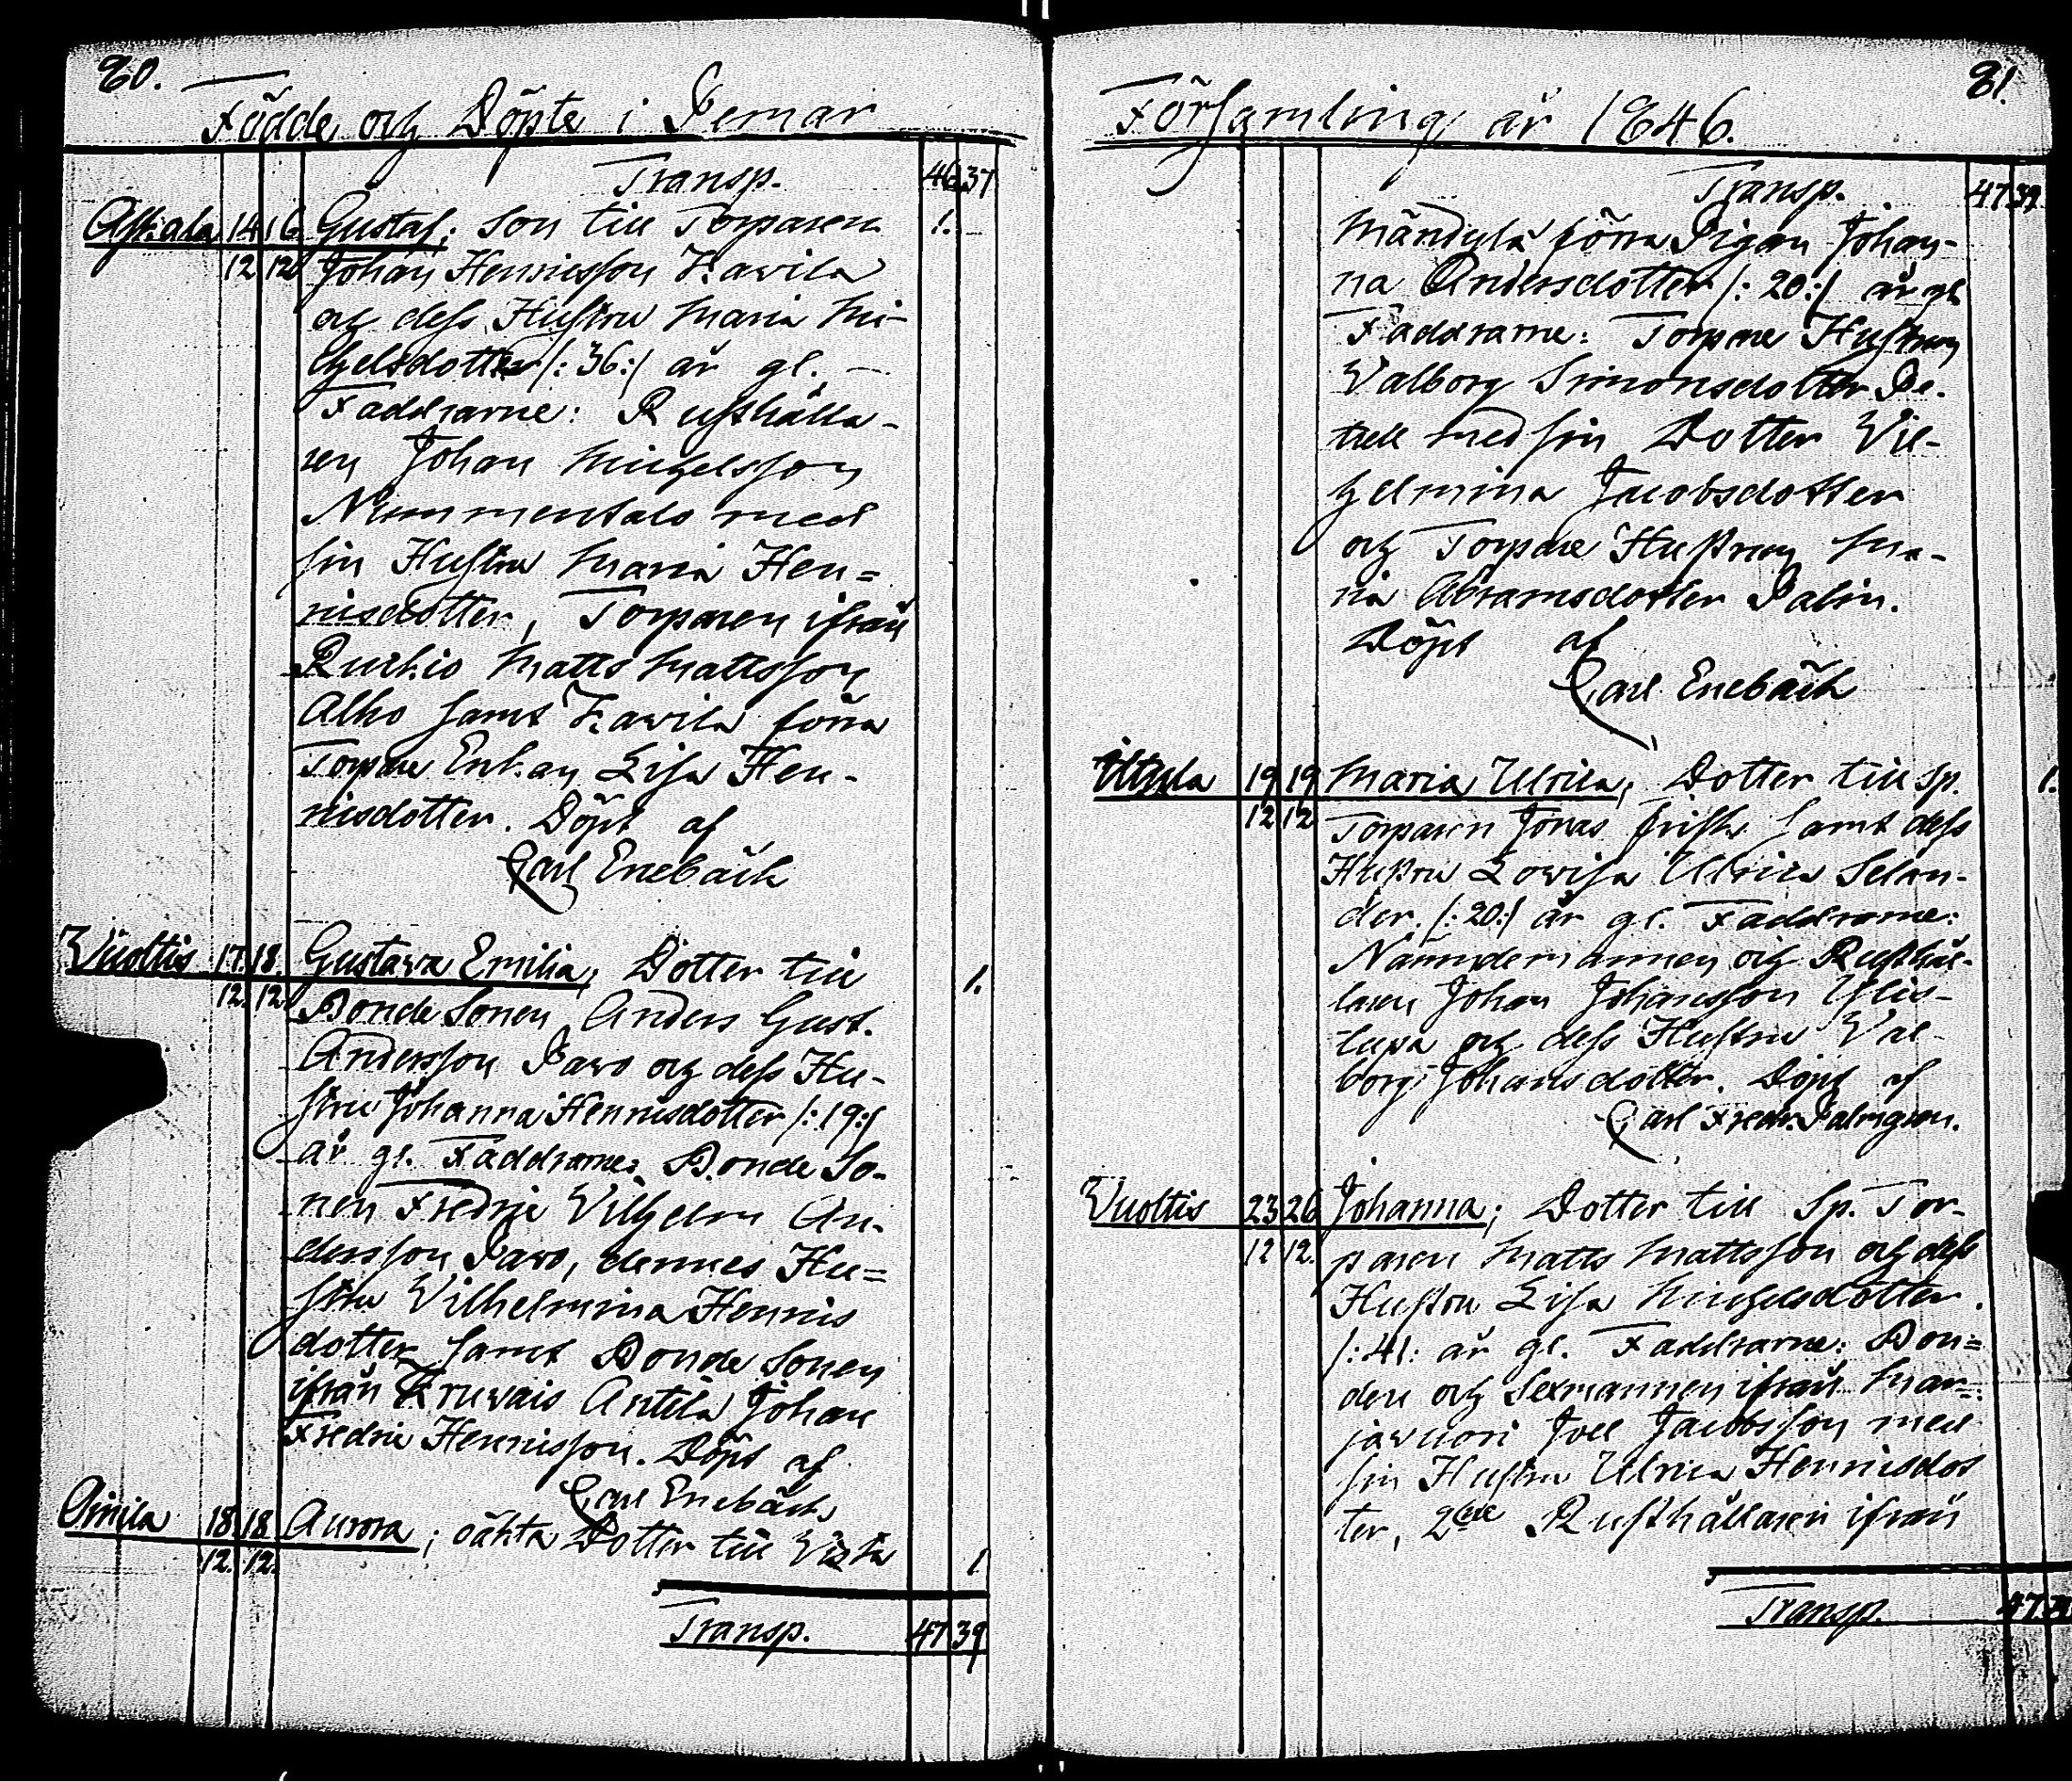 80.
Födde och Döpte i Pemar
Transp. 46 37
Askala 14 16 Gustaf; Son till Torparen 1.
12 12 Johan Henricsson Kawila
och dess Hustru Maria Mi-
chelsdotter /:36:/ år gl. —
Faddrarne: Rusthålla-
ren Johan Michelsson
Nummentalo med
sin Hustru Maria Hen=
ricsdotter, Torparen ifrån
Ruskio Matts Mattsson
Alho samt Kawila förra
Torpare Enkan Lisa Hen-
ricsdotter. Döpt af
Carl Enebäck
Vuoltis 17. 18. Gustava Emilia; Dotter till 1.
12. 12. Bonde Sonen Anders Gust.
Andersson Pavo och dess Hu-
stru Johanna Henricsdotter /:19:/
år gl. Faddrarne: Bonde So-
nen Fredric Vilhelm An-
dersson Pavo, dennes Hu=
stru Vilhelmina Henrics
dotter samt Bonde Sonen
ifrån Kruvais Antila Johan
Fredric Henricsson. Döpt af
Carl Enebäck
18 18 Aurora; oäkta Dotter till 1
12. 12.
Transp. 47 39
81.
Församling år 1846.
Transp. 47 39
Mändylä förra Pigan Johan-
na Andersdotter /:20:/ år gl
Faddrarne: Torpare Hustrun
Valborg Simonsdotter
med sin Dotter Vil-
helmina Jacobsdotter
och Torpare Hustrun Ma-
ria Abramsdotter Palin.
Döpt af
Carl Enebäck
19 19 Maria Ulrica; Dotter till Sp. 1.
12 12 Torparen Jonas Frisk samt dess
Hustru Lowisa Ulrica Selan-
der. /:20:/ år gl. Faddrarne:
Nämndemannen och Rusthål-
laren Johan Johansson Ylis-
tupa och dess Hustru Val-
borg Johansdotter. Döpt af
Carl Fredr. Palmgren.
Vuoltis 23 26 Johanna; Dotter till Sp. Tor-
12 12. paren Matts Mattsson och dess
Hustru Lisa Michelsdotter.
/:41: år gl. Faddrarne: Bon=
den och Sexmannen ifrån Mar=
javuori Joel Jacobsson med
sin Hustru Ulrica Henricsdot
ter, Rusthållaren ifrån
Transp. 47